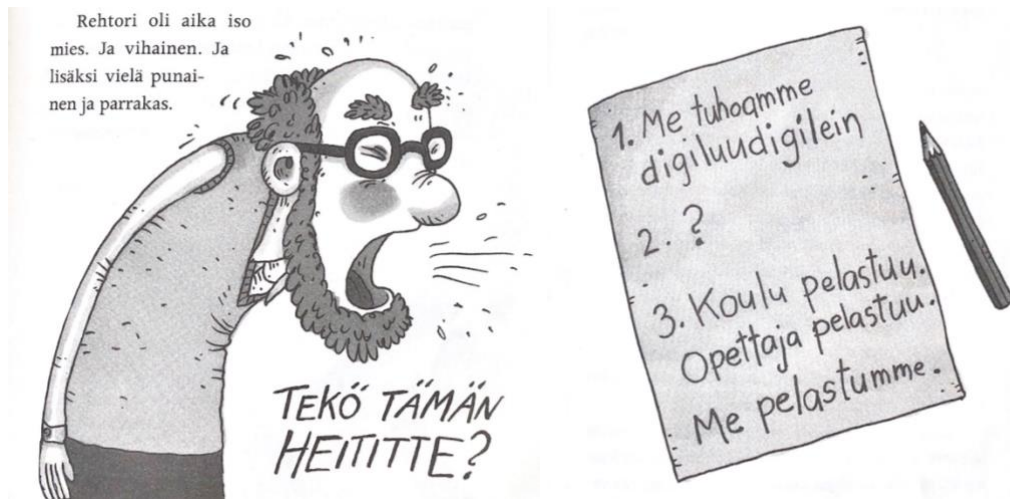 Rehtori oli aika iso
mies. Ja vihainen. Ja
lisäksi vielä punai-
nen ja parrakas.
TEKÖ TÄMÄN
HEITITTE?
1. Me tuhoamme
digiluudigilein
2. ?
3. Koulu pelastuu.
Opettaja pelastuu.
Me pelastumme.